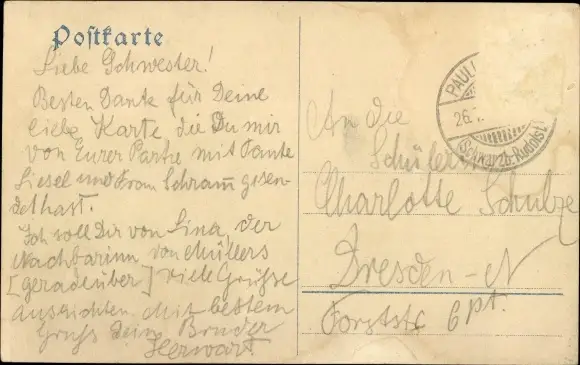 Postkarte
Liebe Schwester!
Besten Dank für Deine
liebe Karte die Du mir
von Eurer Partie mit Tante
Liesel und Frau Schram̄ gesen-
det hast.
Ich soll Dir von Lina, der
Nachbarinn von Müllers
[geradeüber] viele Grüße
ausrichten. Mit bestem
Gruss Dein Bruder
Herwart.
PAUL
26.
(Schwarzb. Rudolst.)
An die
Schülerin
Charlotte Schulze
Dresden-N
Forststr 6 pt.